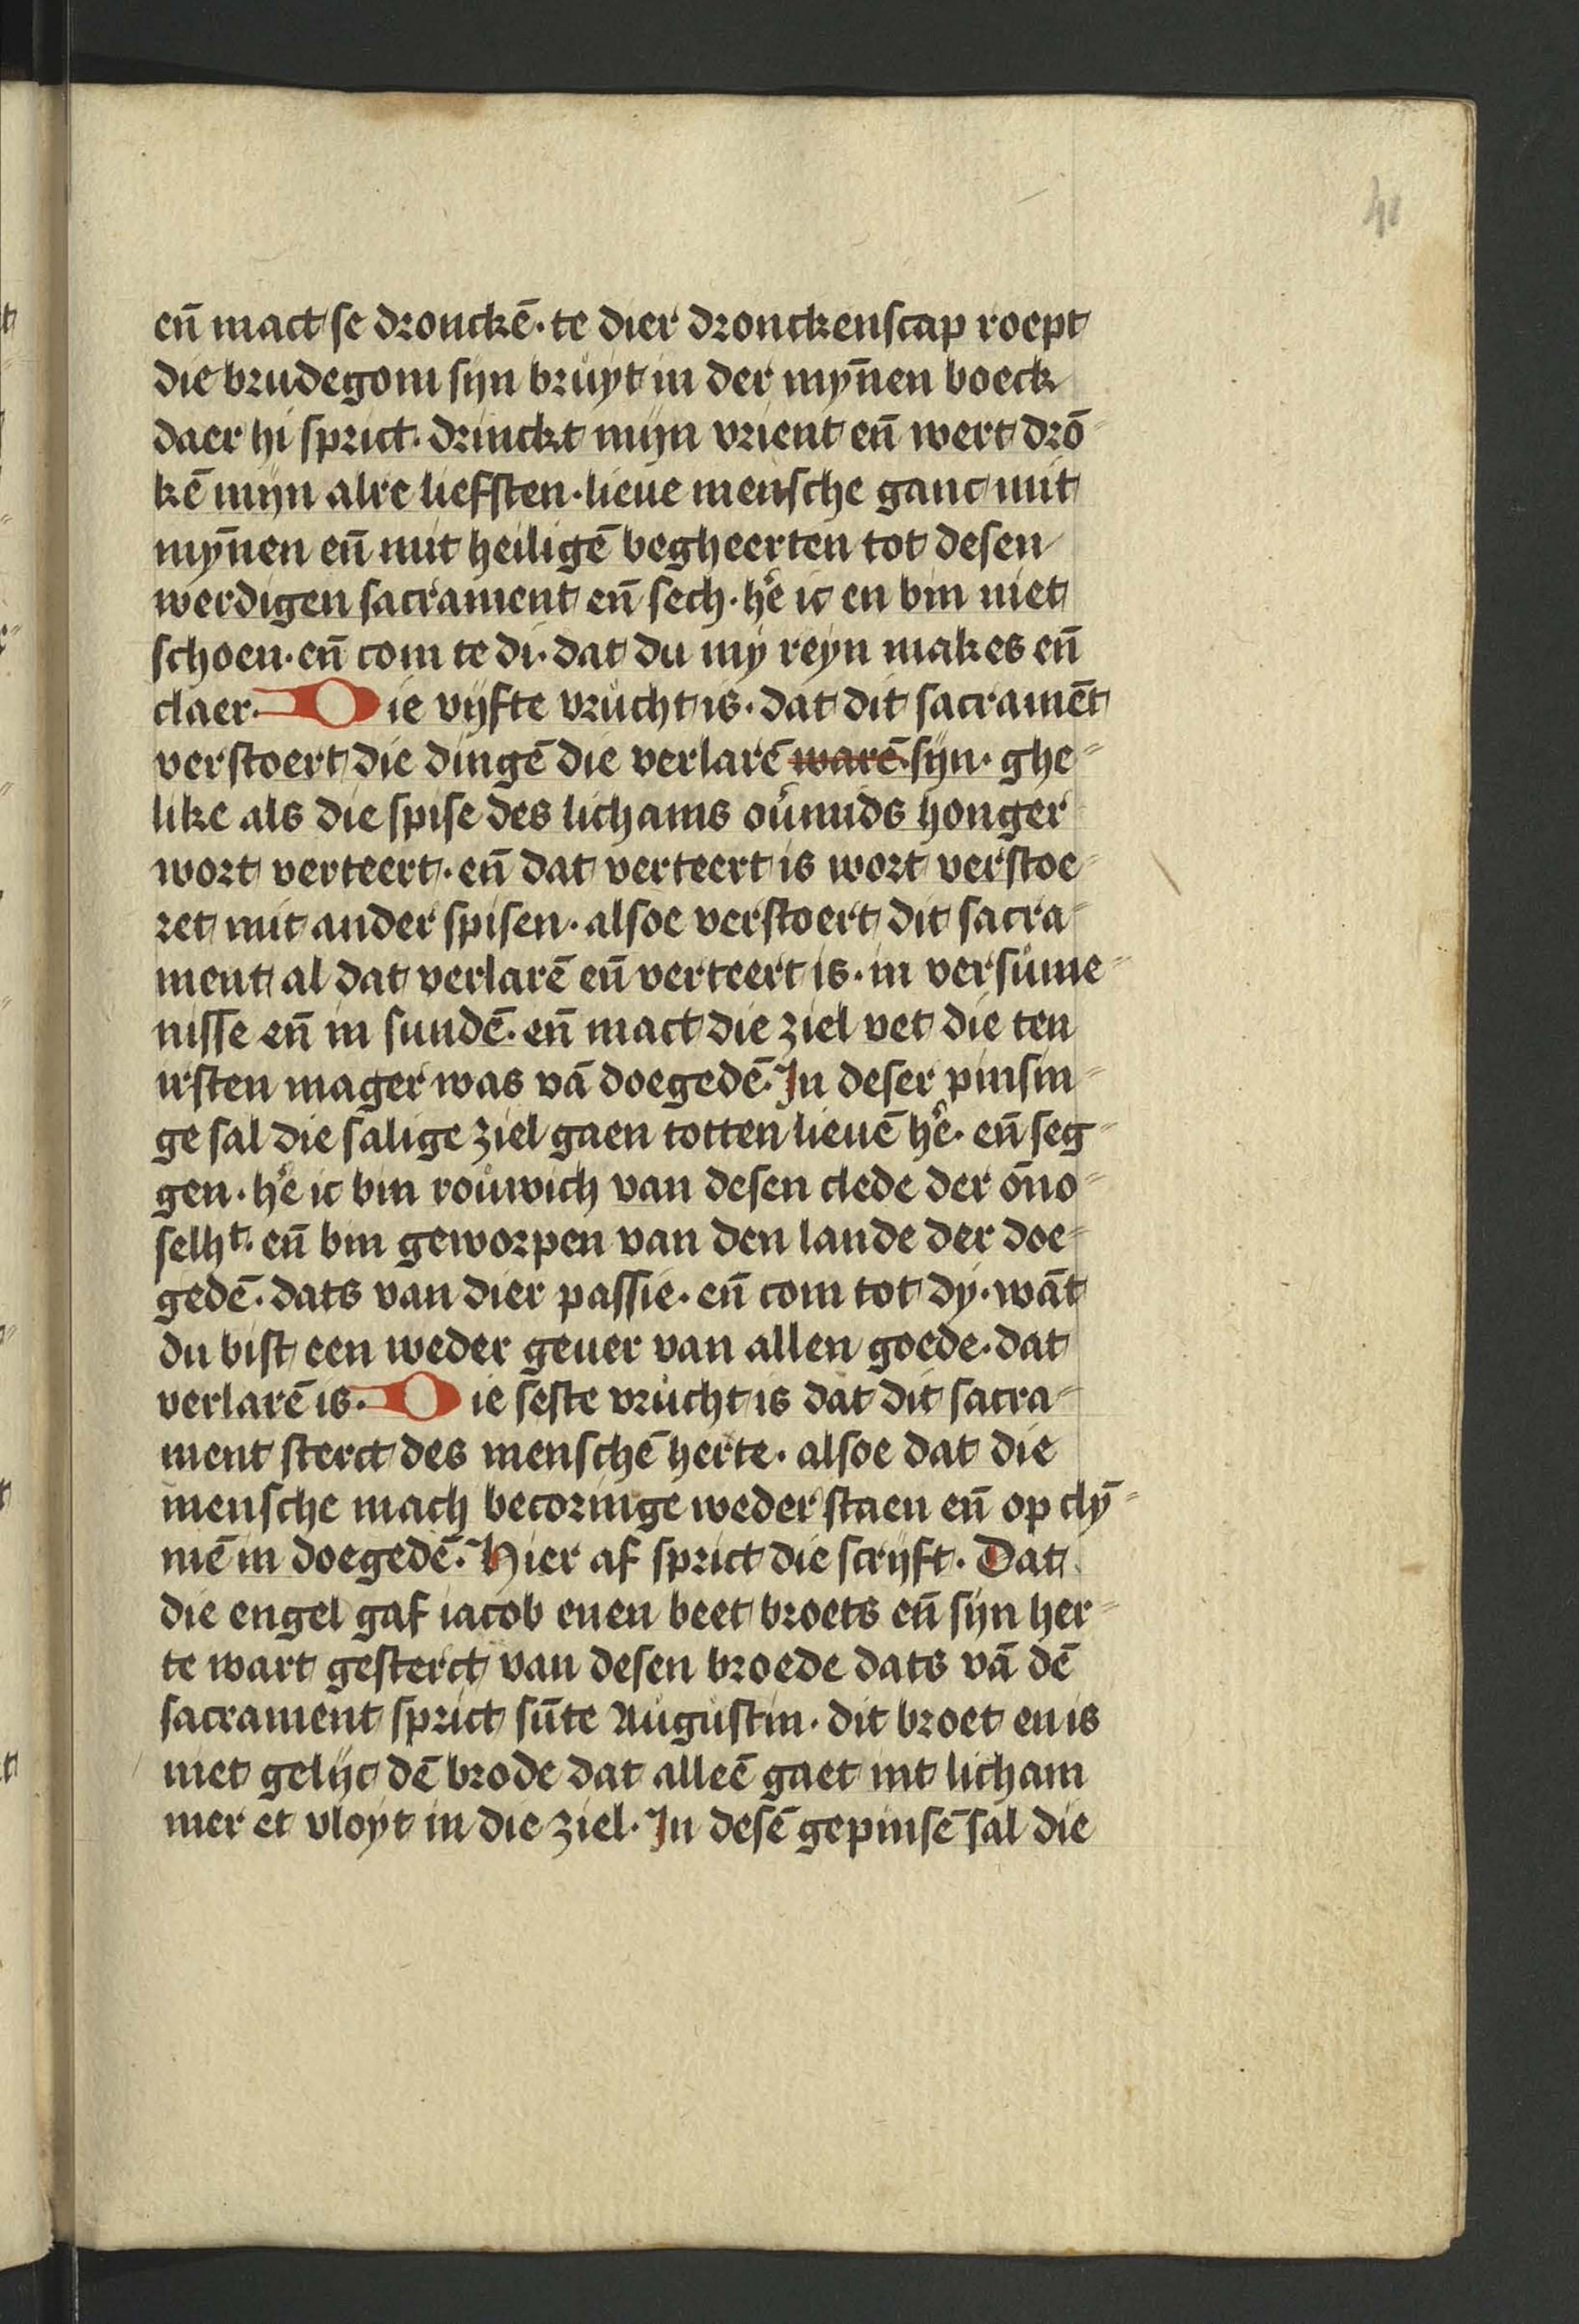 41
en̄ mact se dronckē· te dier dronckenscap roept
die brudegom sijn bruyt in der mȳnen boeck
daer hi sprict· drinckt mijn vrient en̄ wert drō
kē mijn alre liefsten· lieue mensche ganc mit
mȳnen en̄ mit heiligē begheerten tot desen
werdigen sacrament en̄ sech· he͛ ic en bin niet
schoen· en̄ com te di· dat du my reyn makes en̄
claer· Die vijfte vrucht is· dat dit sacramēt
verstoert die dingē die verlarē warē sijn· ghe⸗
like als die spise des lichams ou͛mids honger
wort verteert· en̄ dat verteert is wort verstoe⸗
ret mit ander spisen· alsoe verstoert dit sacra⸗
ment al dat verlarē en̄ verteert is· in versume⸗
nisse en̄ in sundē· en̄ mact die ziel vet die ten
irsten mager was vā doegedē· In deser pinsin⸗
ge sal die salige ziel gaen totten lieuē he͛· en̄ seg⸗
gen· he͛ ic bin rouwich van desen clede der ōno⸗
selhᵗ· en̄ bin geworpen van den lande der doe⸗
gedē· dats van dier passie· en̄ com tot dy· wāt
du bist een weder geuer van allen goede· dat
verlarē is· Die seste vrucht is dat dit sacra⸗
ment sterct des menschē herte· alsoe dat die
mensche mach becoringe weder staen en̄ op clȳ⸗
mē in doegedē· Hier af sprict die scrijft· Dat
die engel gaf iacob enen beet broets en̄ sijn her⸗
te wart gesterct van desen broede dats vā dē
sacrament sprict sūte Augustin· dit broet en is
niet gelijc dē brode dat alleē gaet int licham
mer et vloyt in die ziel· In desē gepinsē sal die